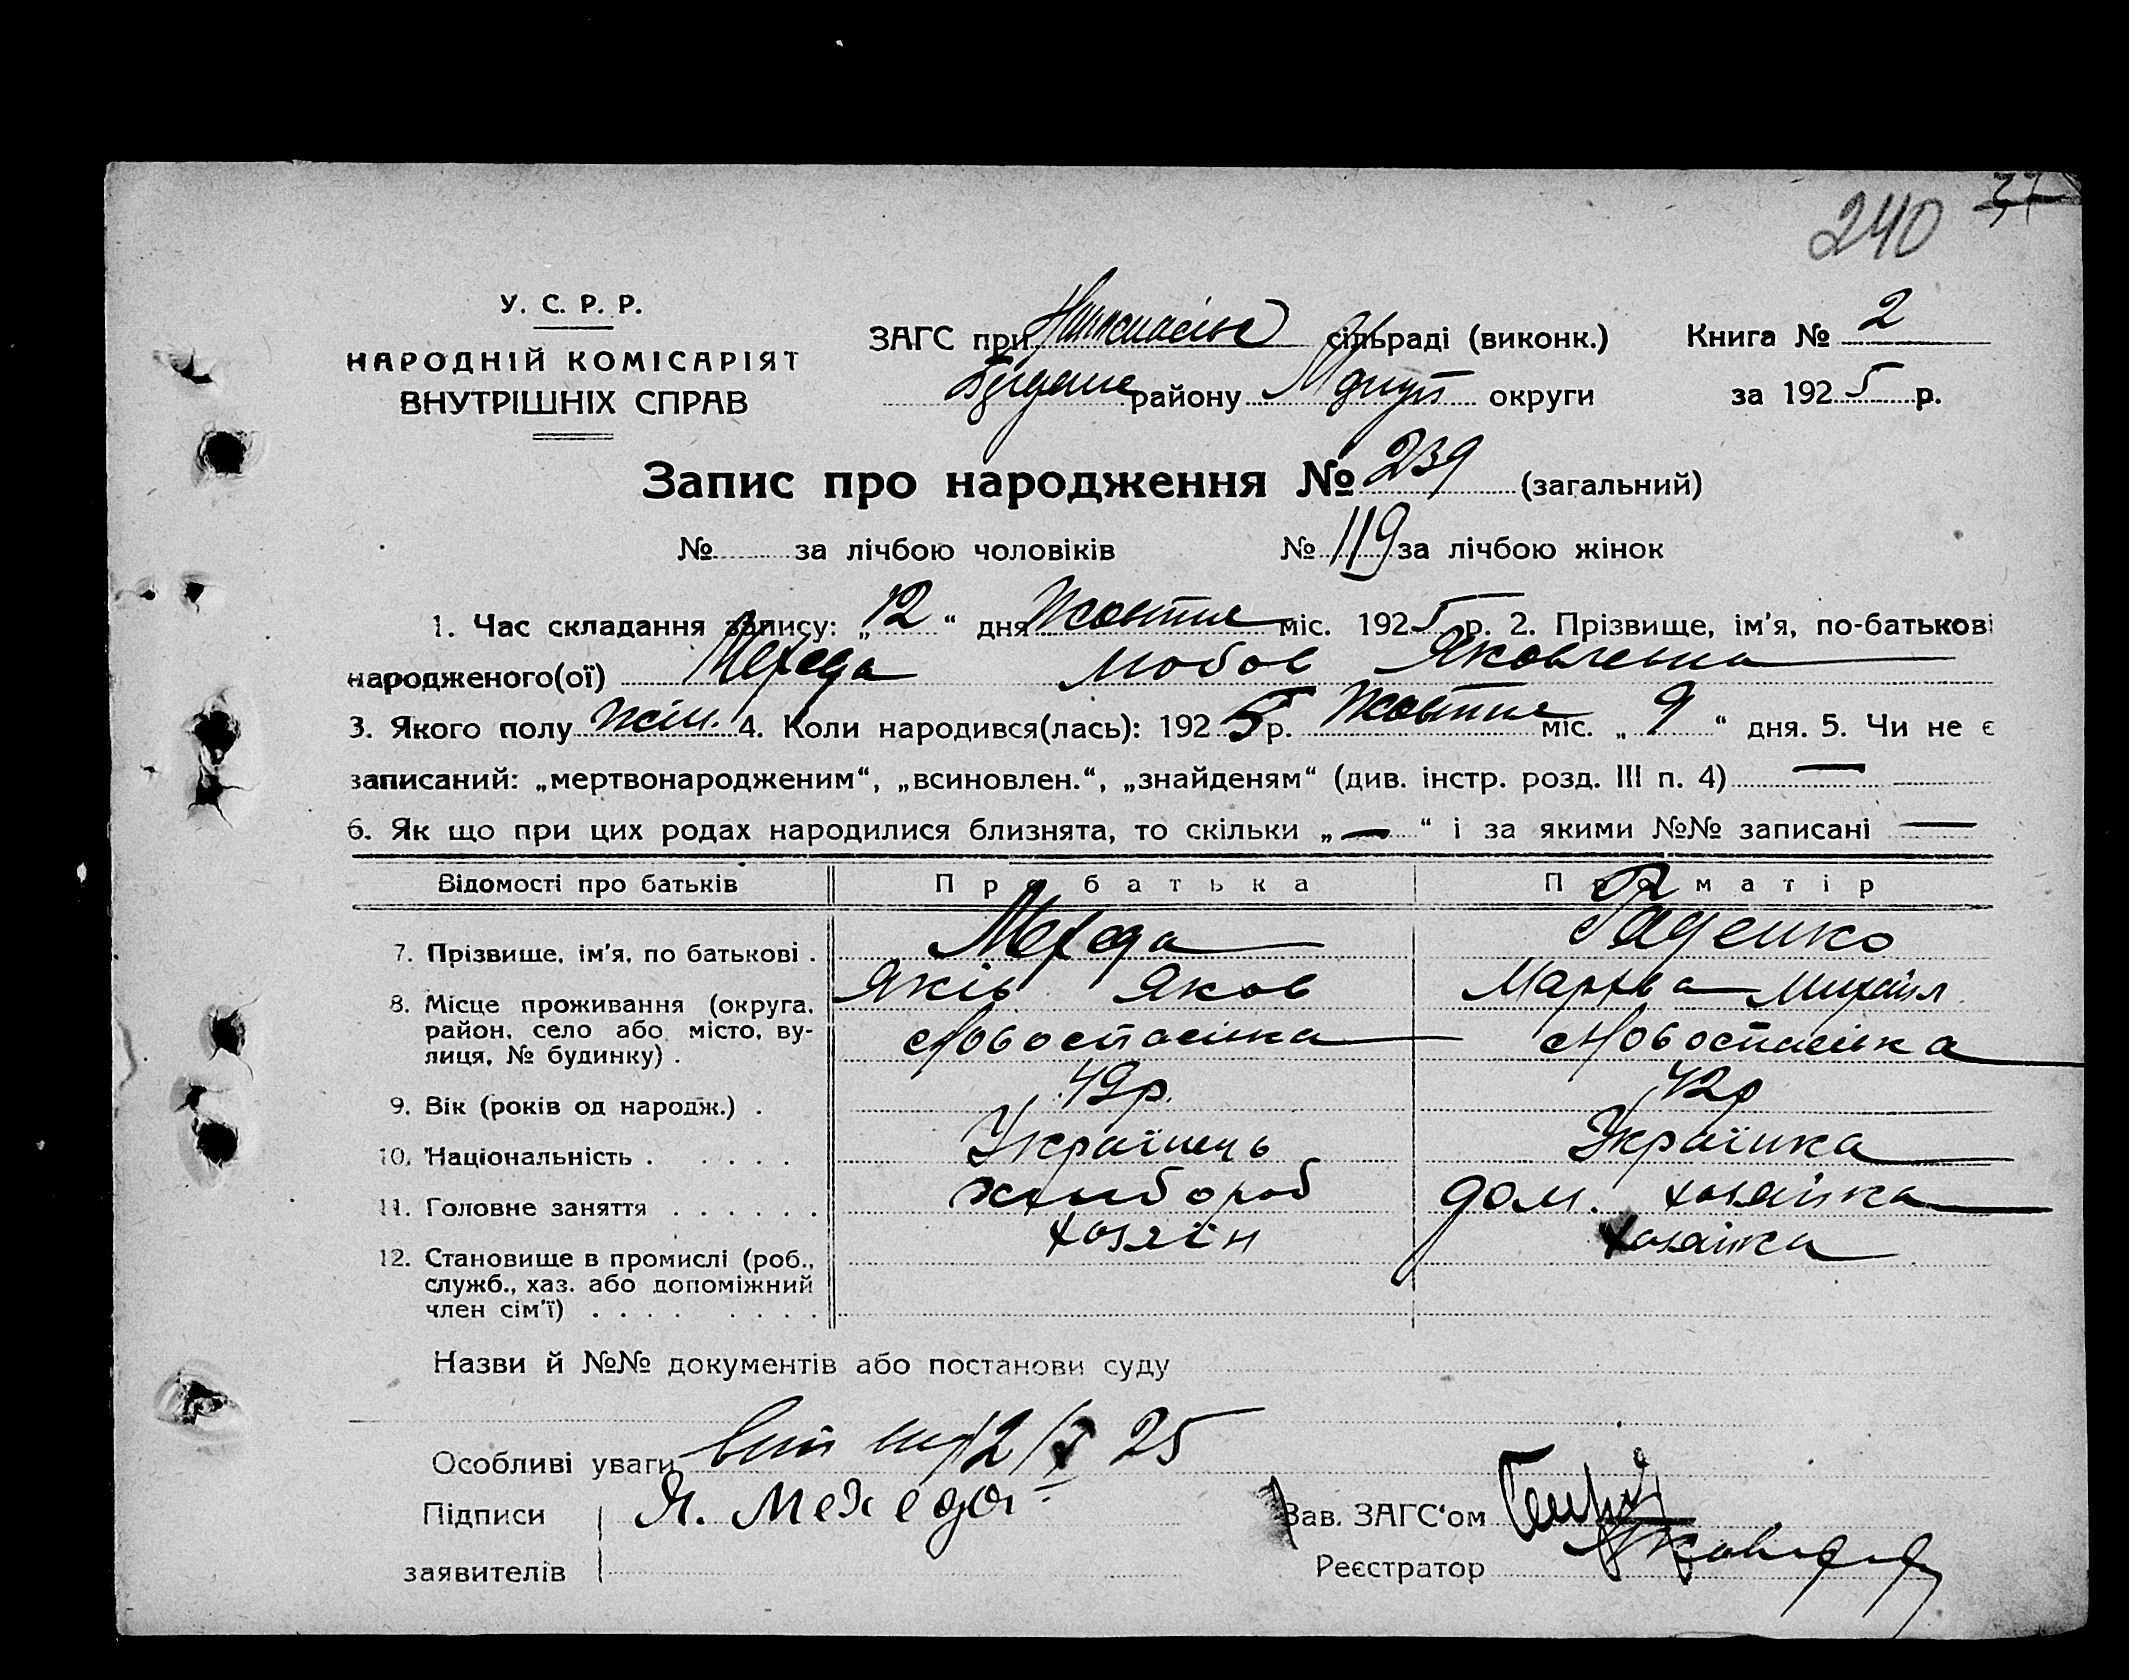 240 37
У. С. Р. Р.
НАРОДНІЙ КОМІСАРІЯТ
ВНУТРІШНІХ СПРАВ
ЗАГС при сільраді (виконк.) Книга № 2
району округи за 1925 р.
Запис про народження № 239 (загальний)
№ за лічбою чоловіків № 119 за лічбою жінок
1. Час складання запису: „12“ дня Жовтня міс. 1925 р. 2. Прізвище, ім'я, по-батькові
народженого(ої) Мехеда Любов Яковлевна
3. Якого полу жін. 4. Коли народився(лась): 1925 р. Жовтня міс. „9“ дня. 5. Чи не є
записаний: „мертвонародженим“, „всиновлен.“, „знайденям“ (див. інстр. розд. III п. 4) —
6. Як що при цих родах народилися близнята, то скільки „—“ і за якими №№ записані —
Відомості про батьків Про батька Про матір
7. Прізвище, ім'я, по батькові . Мехеда
Яків Яков Михайл
8. Місце проживання (округа, район, село або місто, вулиця, № будинку) . Новоспасівка Новоспасівка
9. Вік (років од народж.) . 49р. 42р
10. Національність . . . . . Українець Українка
11. Головне заняття . . . . . . хлибороб дом. хозяйка
12. Становище в промислі (роб., служб., хаз. або допоміжний член сім'ї) . . . . . . . . хозяїн хозяйка
Назви й №№ документів або постанови суду
Особливі уваги 12/X 25
Підписи Я. Мехеда Зав. ЗАГС'ом
заявителів Реєстратор